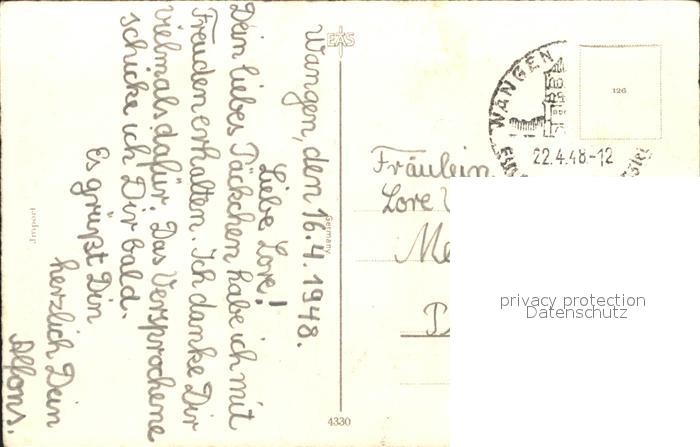 Wangen, den 16.4.1948.
Liebe Lore!
Dein liebes Päckchen habe ich mit
Freuden erhalten. Ich danke Dir
vielmals dafür. Das Versprochene
schicke ich Dir bald.
Es grüßt Din
herzlich Dein
Alfons.
EAS
Germany
4330
Import
WANGEN
22.4.48-12
126
Fräulein
Lore
Me
privacy protection
Datenschutz